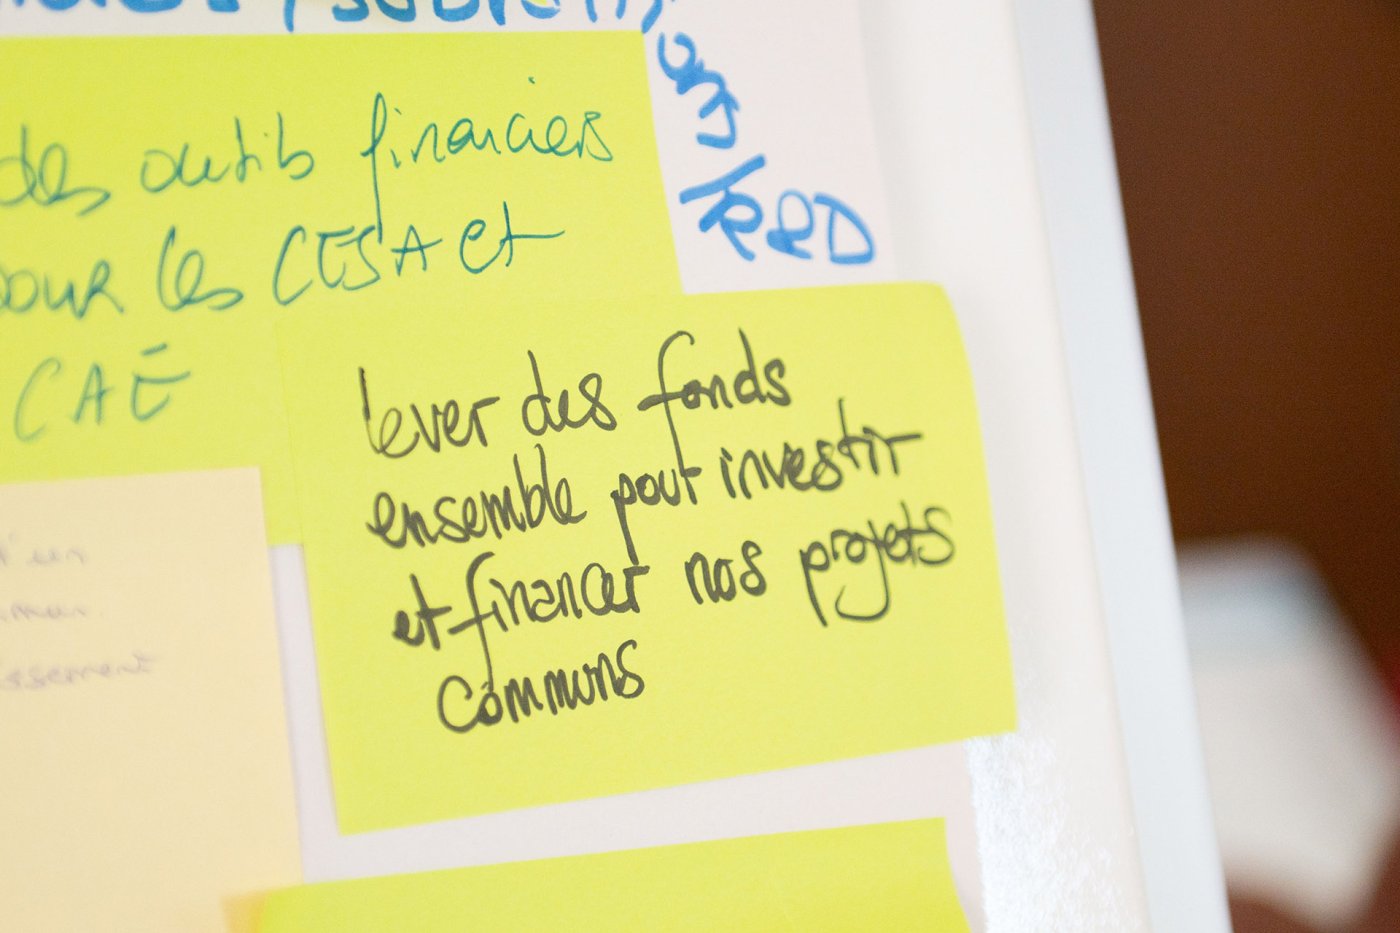 /subv
ons/R&D
des outils financiers
pour les CESA et
CAE
lever des fonds
ensemble pour investir
et financer nos projets
communs
d'un
issement